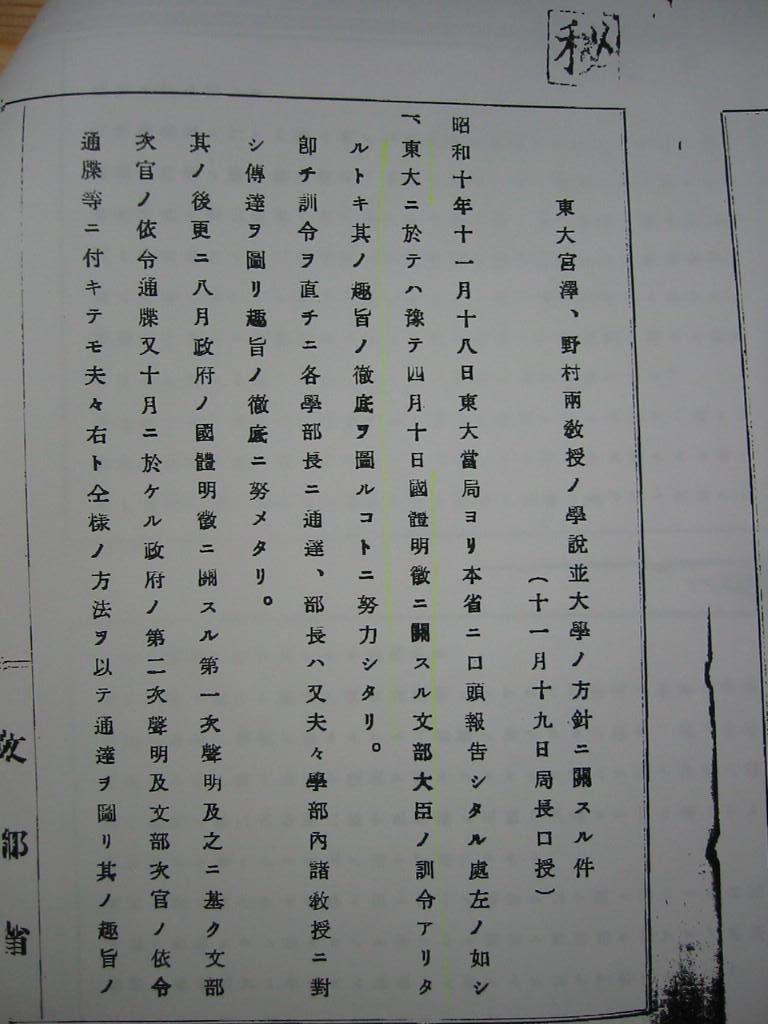 秘
東大宮澤、野村兩敎授ノ學說並大學ノ方針ニ關スル件
(十一月十九日局長口授)
昭和十年十一月十八日東大當局ヨリ本省ニ口頭報告シタル處左ノ如シ
一、東大ニ於テハ豫テ四月十日國體明徵ニ關スル文部大臣ノ訓令アリタ
ルトキ其ノ趣旨ノ徹底ヲ圖ルコトニ努力シタリ。
卽チ訓令ヲ直チニ各學部長ニ通達、部長ハ又夫々學部內諸敎授ニ對
シ傳達ヲ圖リ趣旨ノ徹底ニ努メタリ。
其ノ後更ニ八月政府ノ國體明徵ニ關スル第一次聲明及之ニ基ク文部
次官ノ依命通牒又十月ニ於ケル政府ノ第二次聲明及文部次官ノ依命
通牒等ニ付キテモ夫々右ト仝樣ノ方法ヲ以テ通達ヲ圖リ其ノ趣旨ノ
文部省